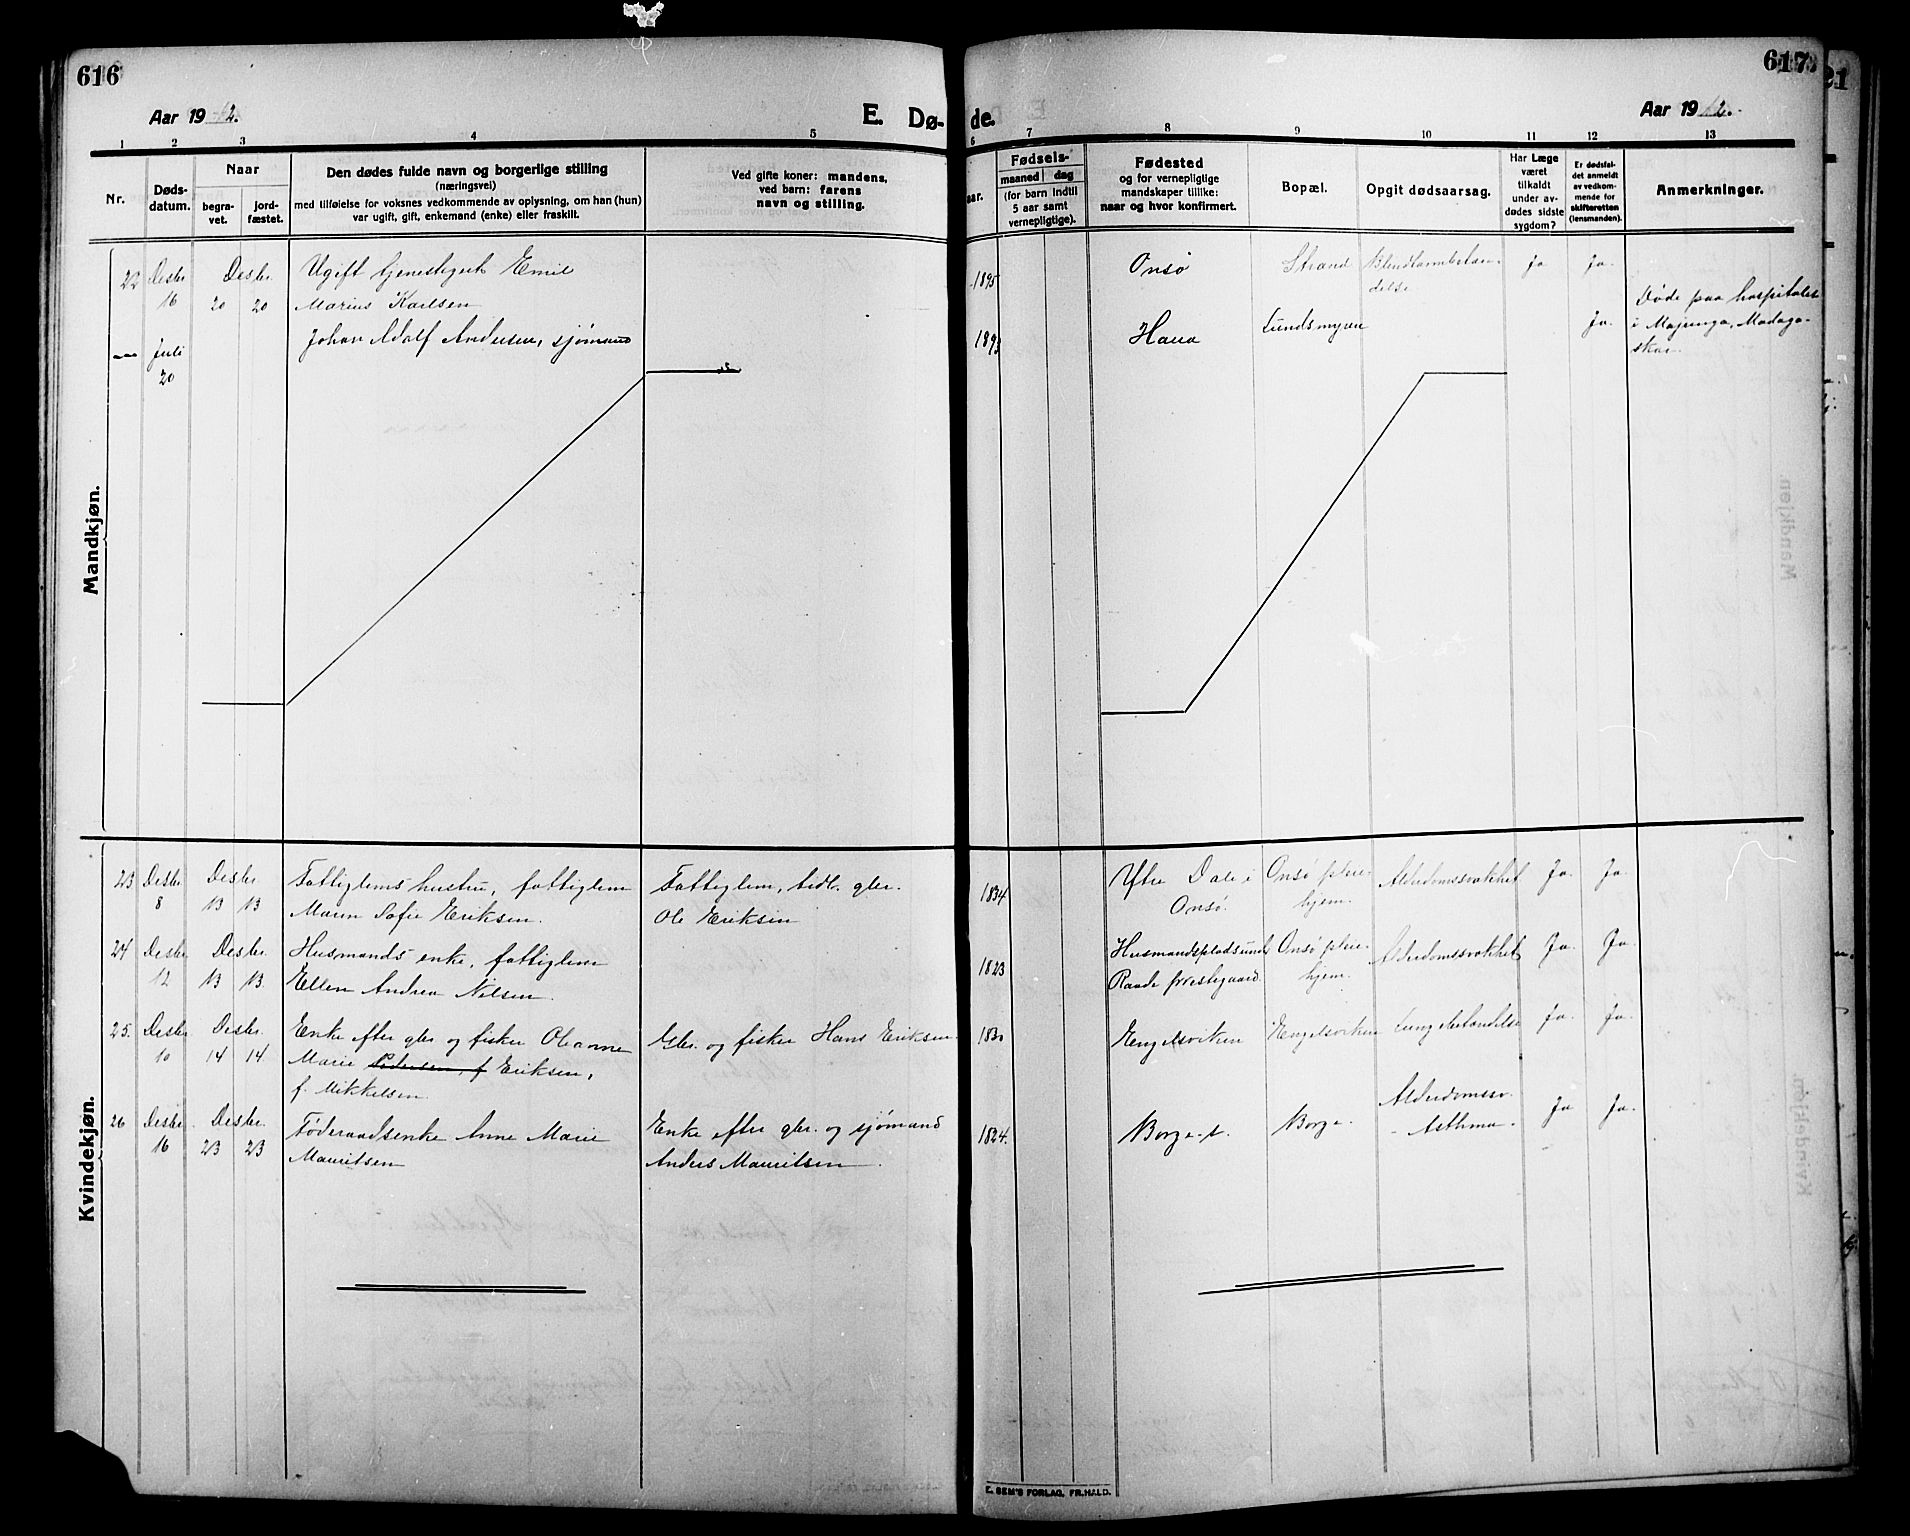 616
617.
21
Aar 1912.
E. Dø-
de.
Aar 1912.
1
2
3
4
5
6
7
8
9
10
11
12
13
Nr.
Døds-
datum.
Naar
begra-
vet.
jord-
fæstet.
Den dødes fulde navn og borgerlige stilling
(næringsvei)
med tilføielse for voksnes vedkommende av oplysning, om han (hun)
var ugift, gift, enkemand (enke) eller fraskilt.
Ved gifte koner: mandens,
ved barn: farens
navn og stilling.
aar.
Fødsels-
maaned dag
(for barn indtil
5 aar samt
vernepligtige).
Fødested
og for vernepligtige
mandskaper tillike:
naar og hvor konfirmert.
Bopæl.
Opgit dødsaarsag.
Har Læge
været
tilkaldt
under av-
dødes sidste
sygdom?
Er dødsfal-
det anmeldt
av vedkom-
mende for
skifteretten
(lensmanden).
Anmerkninger.
Mandkjøn.
22 Desbr. 16 Desbr. 20 20
Ugift tjenestegut Emil
Marius Karlsen
1895 Onsø Strand Blindtarmbetæn-
delse
Ja Ja.
— Juli 20
Johan Adolf Andersen, sjømand
1893 Haua Lundsmyren Ja.
Døde paa hospitalet
i Majunga, Madaga-
skar.
Kvindekjøn.
23 Desbr. 8 Desbr. 13 13
Fattiglems hustru, fattiglem
Maren Sofie Eriksen.
Fattiglem, tidl. gbr.
Ole Eriksen
1834 Ytre Dale i
Onsø.
Onsø pleie-
hjem.
Alderdomssvakhet Ja. Ja.
24 Desbr. 12 Desbr. 13 13.
Husmands enke, fattiglem
Ellen Andrea Nilsen.
1823 Husmandsplads und.
Raade prestegaard.
Onsø pleie-
hjem.
Alderdomssvakhet Ja. Ja.
25. Desbr. 10 Desbr. 14 14
Enke efter gbr. og fisker Oleanne
Marie Pedersen, f Eriksen,
f. Mikkelsen.
Gbr. og fisker Hans Eriksen.
1830 Engelsviken Engelsviken Lungebetændelse Ja. Ja.
26 Desbr. 16 Desbr. 23 23
Føderaadsenke Anne Marie
Mauritsen
Enke efter gbr. og sjømand
Anders Mauritsen.
1824. Borge-t. Borge.
Alderdomssv.
- Asthma -
Ja Ja.
E. SEM'S FORLAG, FR.HALD.